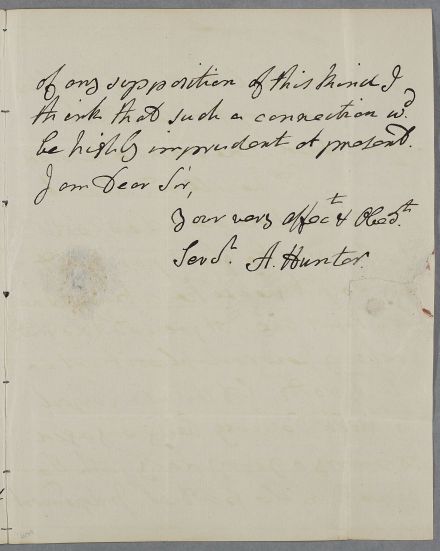 of any supposition of this kind I
think that such a connection wd.
be highly imprudent at present.
I am Dear Sir,
Your very affect & Obedt.
Servt. A. Hunter.